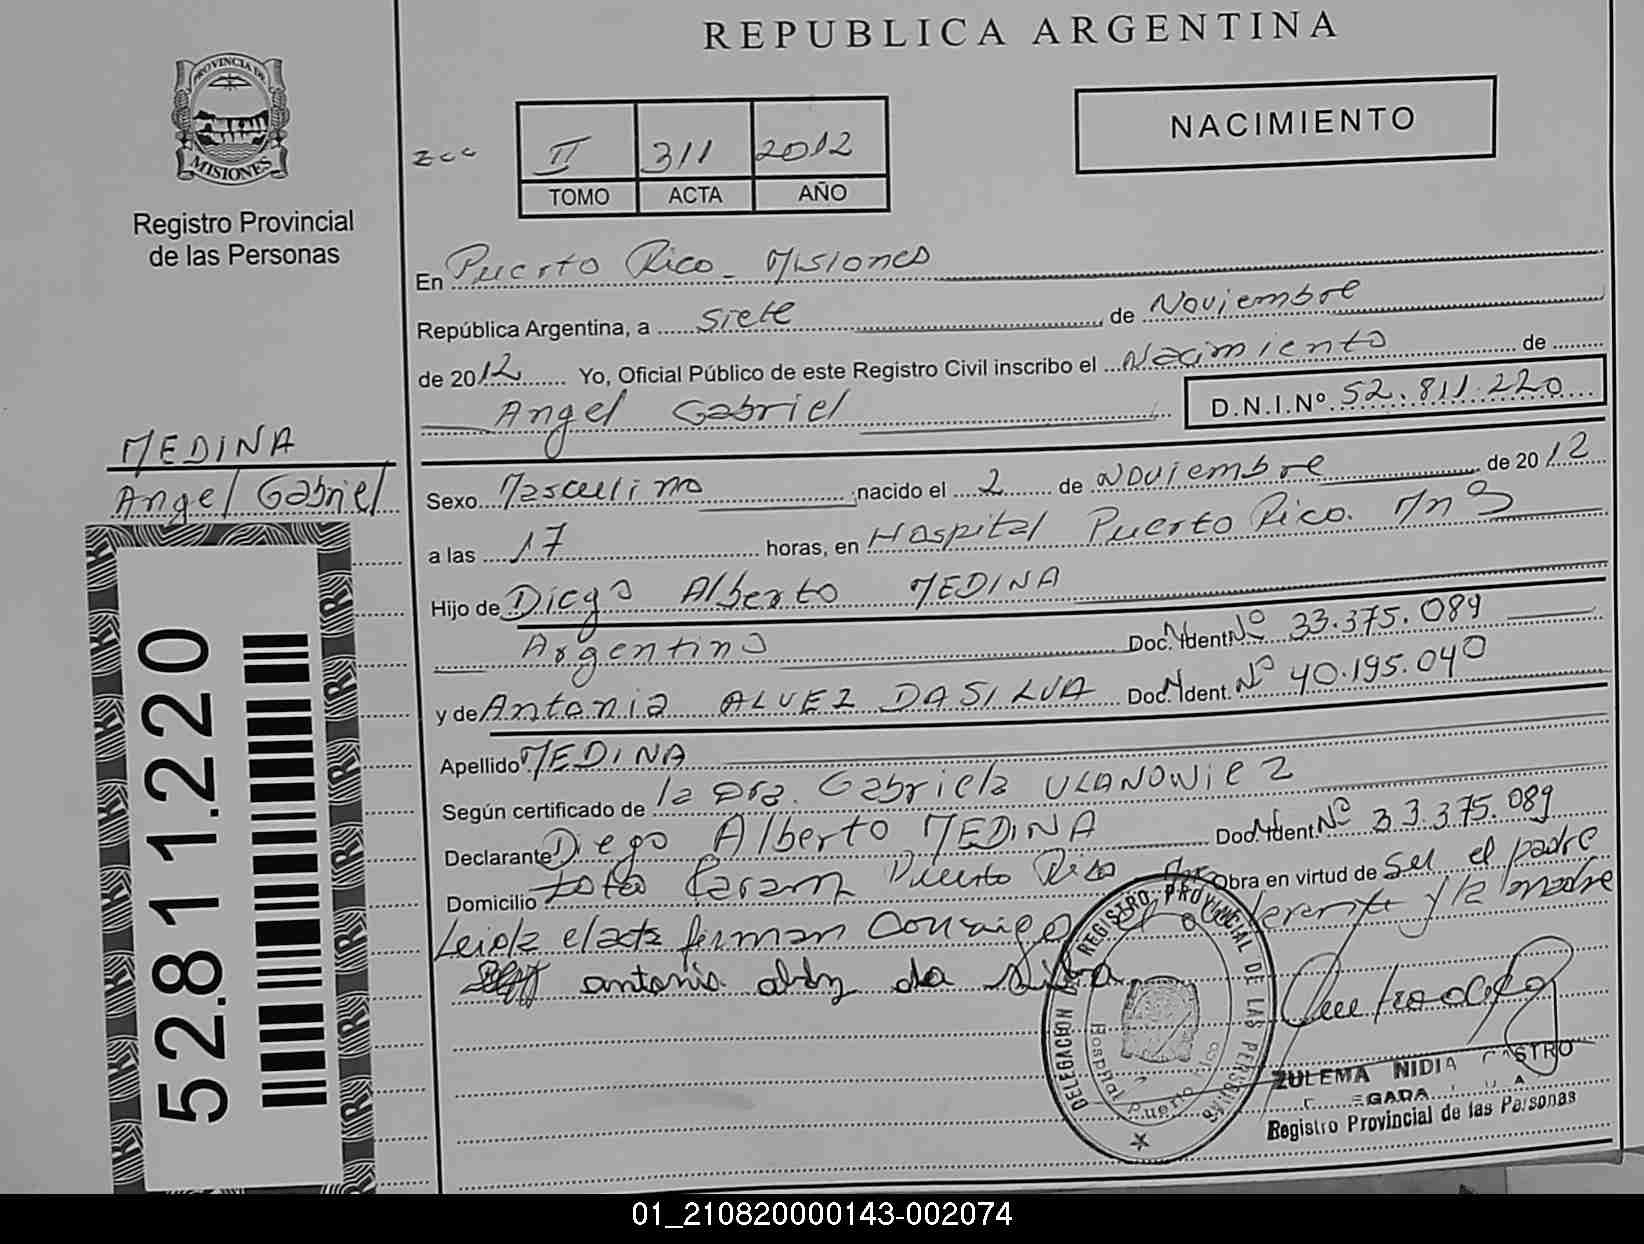 REPUBLICA ARGENTINA
PROVINCIA DE
MISIONES
Registro Provincial
de las Personas
NACIMIENTO
II 311 2012
TOMO ACTA AÑO
En Puerto Rico - Misiones
República Argentina, a siete de Noviembre
de 2012 Yo, Oficial Público de este Registro Civil inscribo el Nacimiento de
Angel Gabriel D.N.I.Nº 52.811.220
MEDINA
Angel Gabriel
52.811.220
Sexo Masculino nacido el 2 de Noviembre de 2012
a las 17 horas, en Hospital Puerto Rico. Mnes
Hijo de Diego Alberto MEDINA
Argentino Doc. Ident. Nº 33.375.089
y de Antonia ALVEZ DA SILVA Doc. Ident. Nº 40.195.040
Apellido MEDINA
Según certificado de la Dra. Gabriela ULANOWIEZ
Declarante Diego Alberto MEDINA Doc. Ident. Nº 33.375.089
Domicilio Puerto Rico Obra en virtud de Ser el padre
Leida el acta firman Conmigo el y la madre
antonia da silva
DELEGACION REGISTRO PROVINCIAL DE LAS PERSONAS
Hospital Puerto Rico
ZULEMA NIDIA CASTRO
Registro Provincial de las Personas
01_210820000143-002074